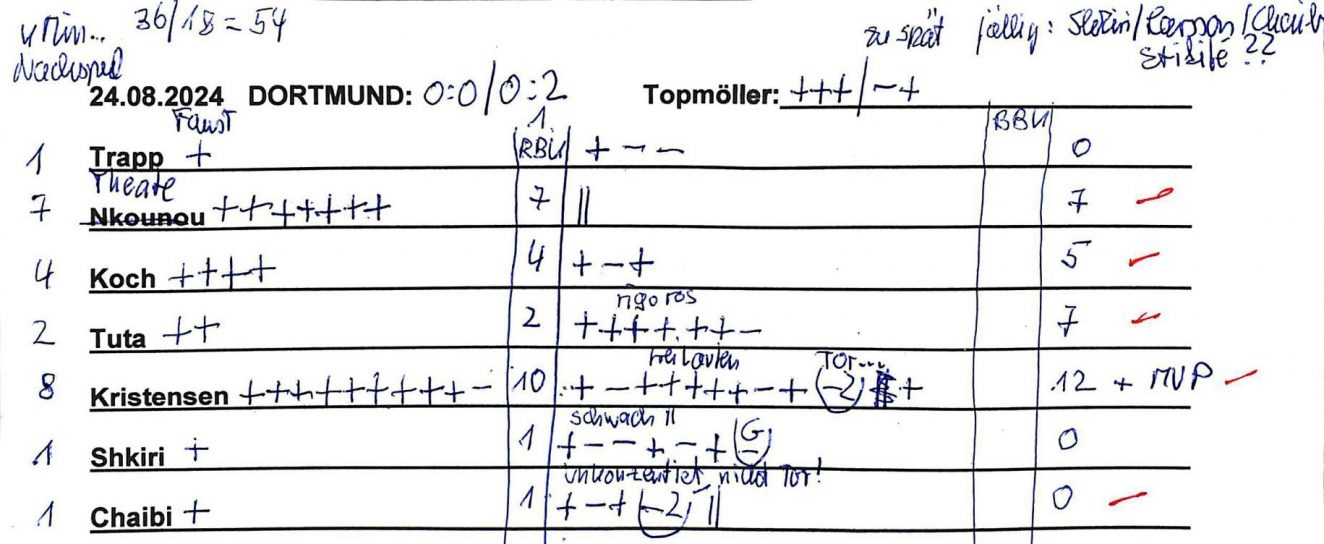 4 Min.. 36/18 = 54
Nachspiel
zu spät fällig: Skhiri/Larsson/Chaibi
Ekitiké ??
24.08.2024 DORTMUND: 0:0/0:2 Topmöller: +++/-+
Faust 1
1 Trapp + RBU + - - BBU 0
Theate
7 Nkounou +++++++ 7 || 7
4 Koch ++++ 4 + - + 5
rigoros
2 Tuta ++ 2 ++++.++- 7
freilaufen TOR...
8 Kristensen +++++++++- 10 + - +++++ - + (-2) + 12 + MVP
schwach ||
1 Shkiri + 1 + - - + - + (G -) 0
unkonzentriert, nicht Tor!
1 Chaibi + 1 + - + (-2) || 0